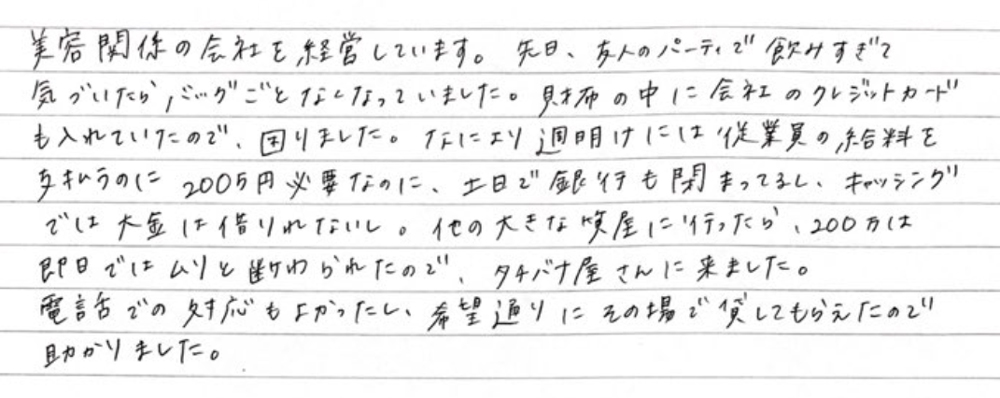 美容関係の会社を経営しています。先日、友人のパーティで飲みすぎて
気づいたらバッグごとなくなっていました。財布の中に会社のクレジットカード
も入れていたので、困りました。なにより週明けには従業員の給料を
支払うのに200万円必要なのに、土日で銀行も閉まってるし、キャッシング
では大金は借りれないし。他の大きな質屋に行ったら、200万は
即日ではムリと断わられたので、タチバナ屋さんに来ました。
電話での対応もよかったし、希望通りにその場で貸してもらえたので
助かりました。